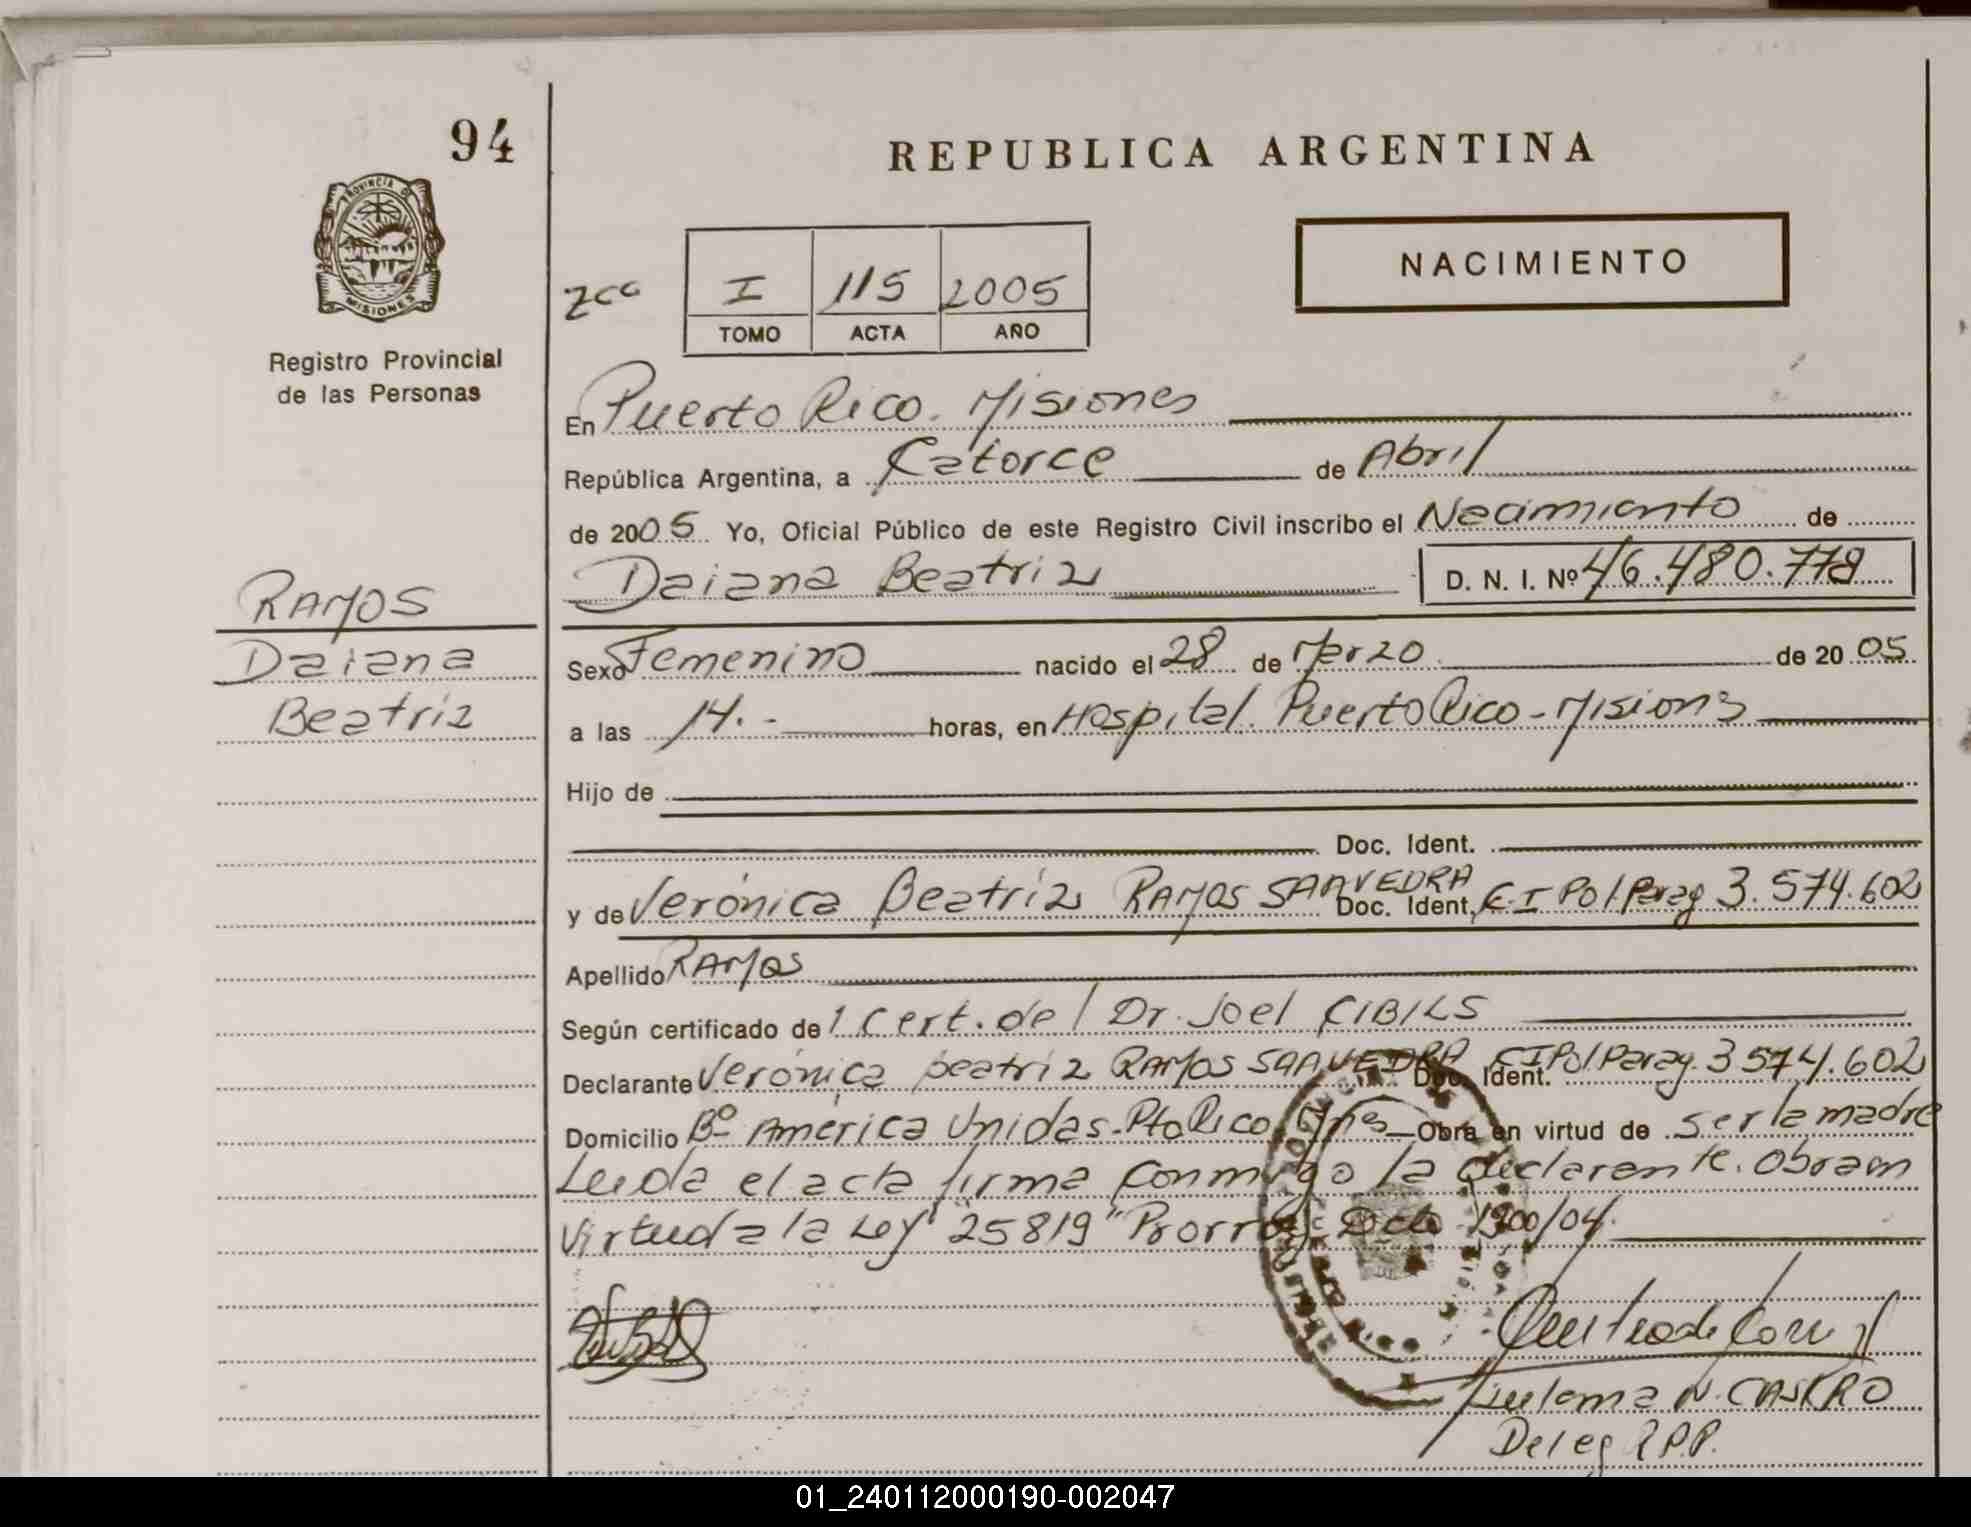 94
REPUBLICA ARGENTINA
PROVINCIA DE
MISIONES
NACIMIENTO
I 115 2005
TOMO ACTA AÑO
Registro Provincial
de las Personas
En Puerto Rico. Misiones
República Argentina, a Catorce de Abril
de 2005 Yo, Oficial Público de este Registro Civil inscribo el Nacimiento de
Daiana Beatriz D. N. I. Nº 46.480.778
RAMOS
Daiana
Beatriz
Sexo Femenino nacido el 28 de Marzo de 2005
a las 14.- horas, en Hospital. Puerto Rico - Misions
Hijo de
Doc. Ident.
y de Verónica Beatriz RAMOS SAAVEDRA Doc. Ident. C.I Pol. Parag 3.574.602
Apellido RAMOS
Según certificado de 1 Cert. del Dr. Joel CIBILS
Declarante Verónica Beatriz RAMOS SAAVEDRA Doc. Ident. CI Pol Parag. 3574.602
Domicilio Bº America Unidas - Pto Rico, Mnes Obra en virtud de ser la madre
Leida el acta firma conmigo la declarante. Obra en
virtud a la Ley "25819" Prorrog. Dcto 1900/04.
N. CASTRO
Deleg R.P.P.
01_240112000190-002047